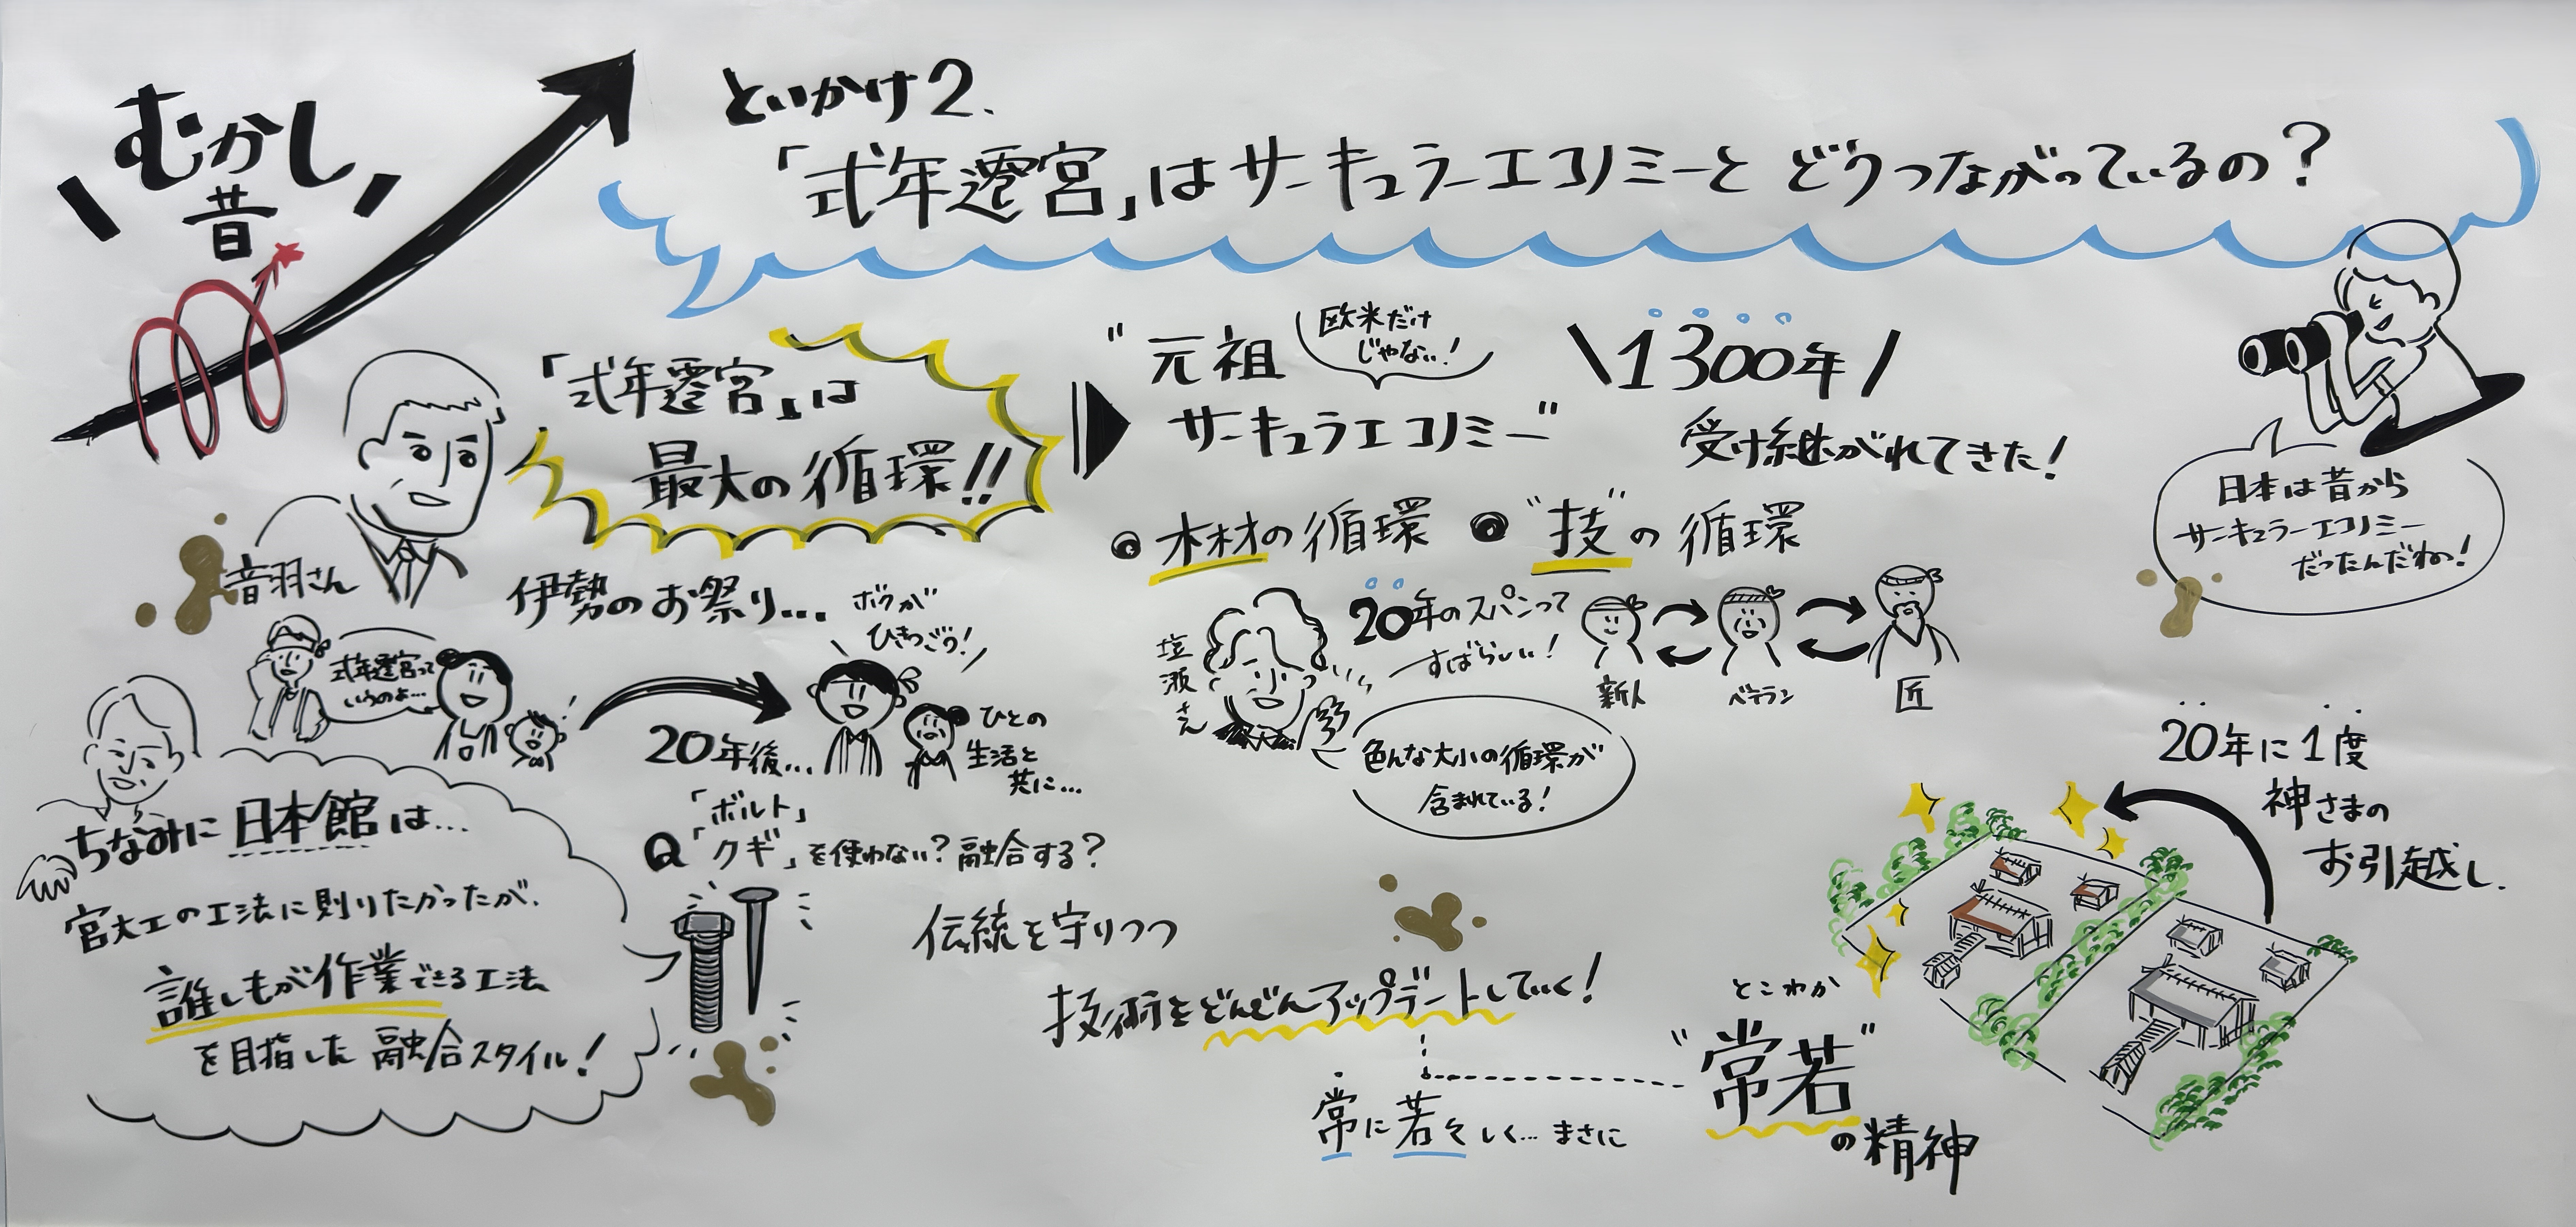 むかし
昔
といかけ2.
「式年遷宮」はサーキュラーエコノミーと どうつながっているの？
音羽さん
「式年遷宮」は
最大の循環!!
"元祖
サーキュラエコノミー"
欧米だけ
じゃない!
1300年
受け継がれてきた！
●木材の循環 ●"技"の循環
日本は昔から
サーキュラーエコノミー
だったんだね！
伊勢のお祭り…
式年遷宮って
いうのよ…
20年後…
ボクが
ひきつごう！
ひとの
生活と
共に…
塩瀬さん
20年のスパンって
すばらしい！
新人
ベテラン
匠
色んな大小の循環が
含まれている！
ちなみに 日本館は…
宮大工の工法に則りたかったが、
誰しもが作業できる工法
を目指した 融合スタイル！
Q「ボルト」
「クギ」を使わない？融合する？
伝統を守りつつ
技術をどんどんアップデートしていく！
常に若々しく… まさに
とこわか
"常若"
の精神
20年に1度
神さまの
お引越し.